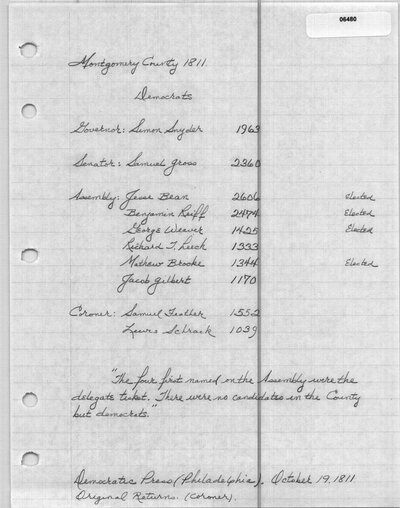 06480
Montgomery County 1811
Democrats
Governor: Simon Snyder 1963
Senator: Samuel Gross 2360
Assembly: Jesse Bean 2606 Elected
Benjamin Reiff 2474 Elected
George Weaver 1425 Elected
Richard T. Leech 1333
Mathew Brooke 1344 Elected
Jacob Gilbert 1170
Coroner: Samuel Feather 1552
Lewis Schrack 1039
"The four first named on the Assembly were the
delegate ticket. There were no candidates in the County
but democrats."
Democratic Press (Philadelphia). October 19, 1811
Original Returns. (Coroner).